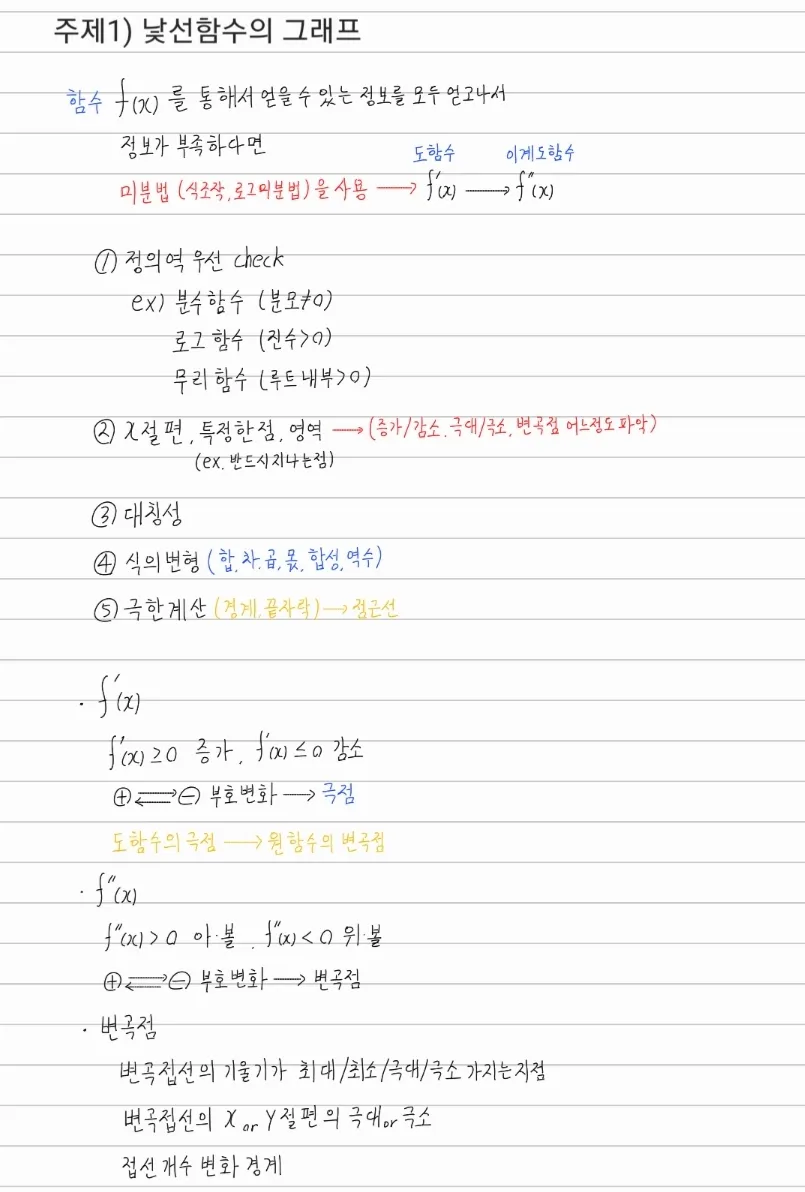 주제1) 낯선함수의 그래프
함수 f(x) 를 통해서 얻을 수 있는 정보를 모두 얻고나서
정보가 부족하다면
도함수 이계도함수
미분법 (식조작, 로그미분법)을 사용 → f'(x) → f''(x)
① 정의역 우선 check
ex) 분수함수 (분모≠0)
로그함수 (진수>0)
무리함수 (루트내부>0)
② X절편, 특정한점, 영역 → (증가/감소, 극대/극소, 변곡점 어느정도 파악)
(ex. 반드시지나는점)
③ 대칭성
④ 식의변형 (합,차,곱,몫,합성,역수)
⑤ 극한계산 (경계,끝자락) → 점근선
· f'(x)
f'(x)≥0 증가, f'(x)≤0 감소
⊕⇄⊖ 부호변화 → 극점
도함수의 극점 → 원함수의 변곡점
· f''(x)
f''(x)>0 아·볼, f''(x)<0 위·볼
⊕⇄⊖ 부호변화 → 변곡점
· 변곡점
변곡접선의 기울기가 최대/최소/극대/극소 가지는지점
변곡접선의 X or Y절편의 극대or극소
접선개수 변화 경계